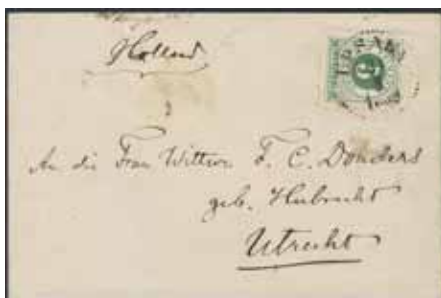 Holland
UPSALA
5
An die Frau Wittwe F. C. Donders
geb. Hubrecht
Utrecht